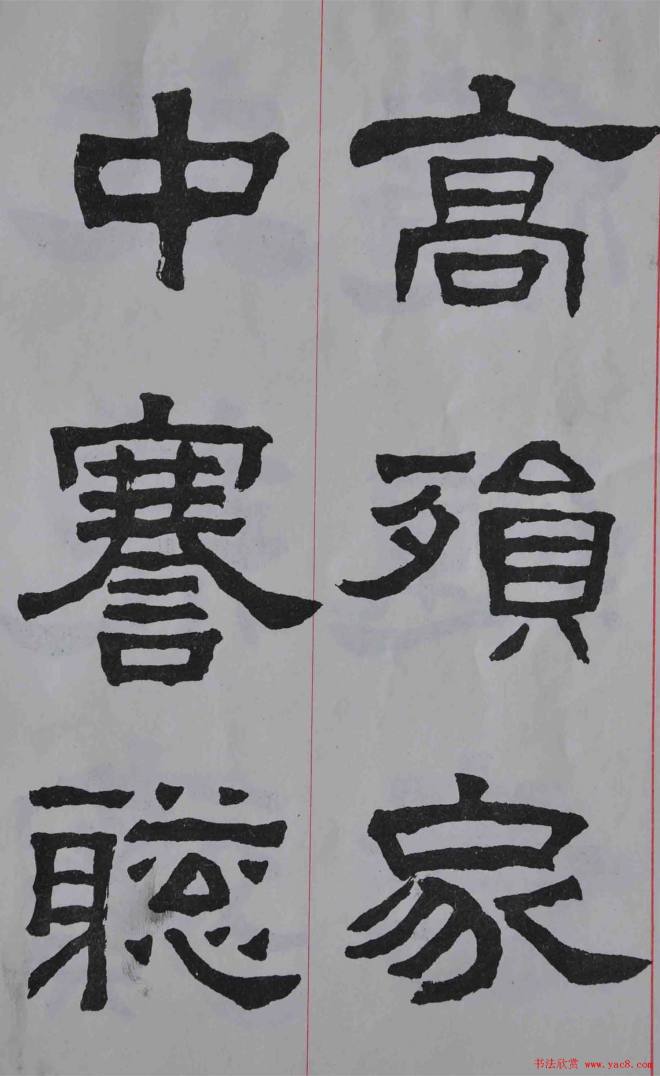 高殞家
中謇聰
书法欣赏 www.yac8.com